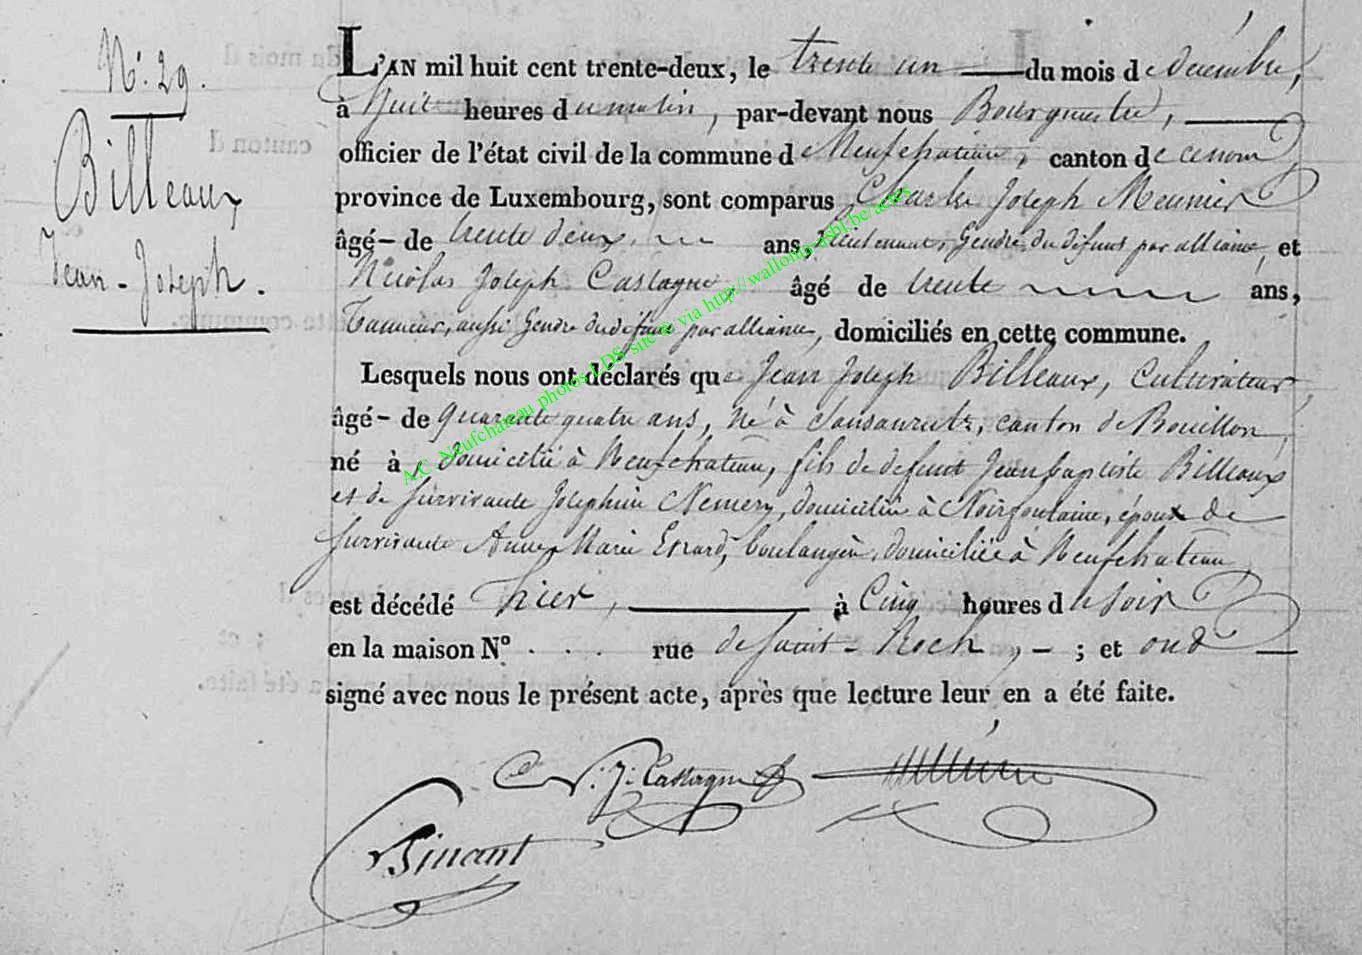 N.° 29.
Billeaux
Jean-Joseph.
L'AN mil huit cent trente-deux, le trente un du mois de décembre,
à huit heures du matin, par-devant nous Bourgmestre,
officier de l'état civil de la commune de Neufchateau, canton de ce nom,
province de Luxembourg, sont comparus Charles Joseph Meunier
âgé - de trente deux ans, Lieutenant, Gendre du défunt par alliance, et
Nicolas Joseph Castagne, âgé de trente ans,
Tanneur, aussi Gendre du défunt par alliance, domiciliés en cette commune.
Lesquels nous ont déclarés que Jean Joseph Billeaux, Cultivateur,
âgé - de quarante quatre ans, né à Sensenruth, canton de Bouillon,
né à, domicilié à Neufchateau, fils de defunt Jean baptiste Billeaux
et de survivante Josephine Nemery, domiciliée à Noirfontaine, époux de
survivante Anne Marie Evrard, boulangère, domiciliée à Neufchateau,
est décédé hier, à Cinq heures du soir
en la maison N° . . . rue de Saint-Roch, - ; et ont
signé avec nous le présent acte, après que lecture leur en a été faite.
N. J. Castagne
A.C. Neufchateau photos LDS site via http://wallonia-asbl.be/actes